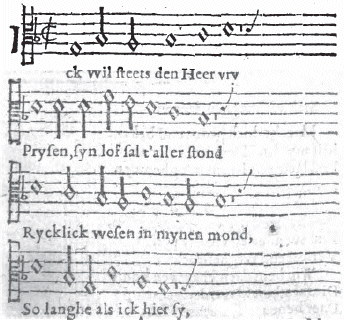 ck wil steets den Heer vry
Prysen, syn lof sal t'aller stond
Rycklick wesen in mynen mond,
So langhe als ick hier sy,